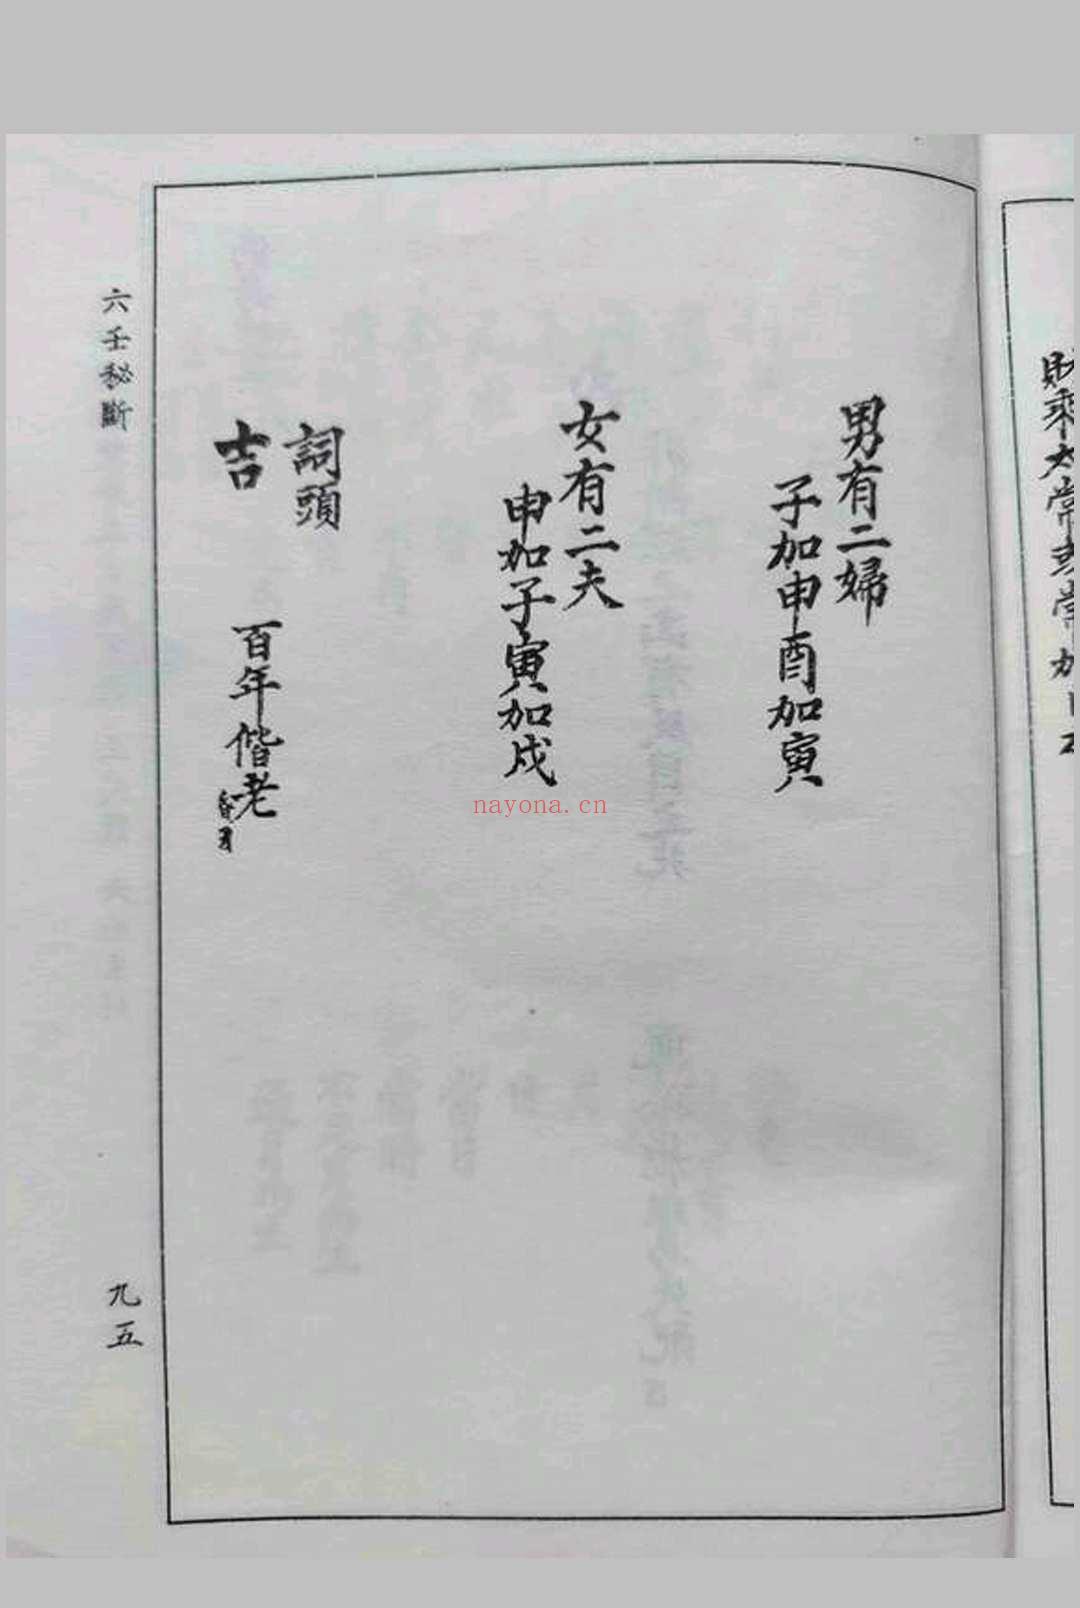 財乘太常
男有二婦
子加申酉加寅
女有二夫
申加子寅加戍
詞頭
吉
百年偕老
六壬秘斷
九五
nayona.cn